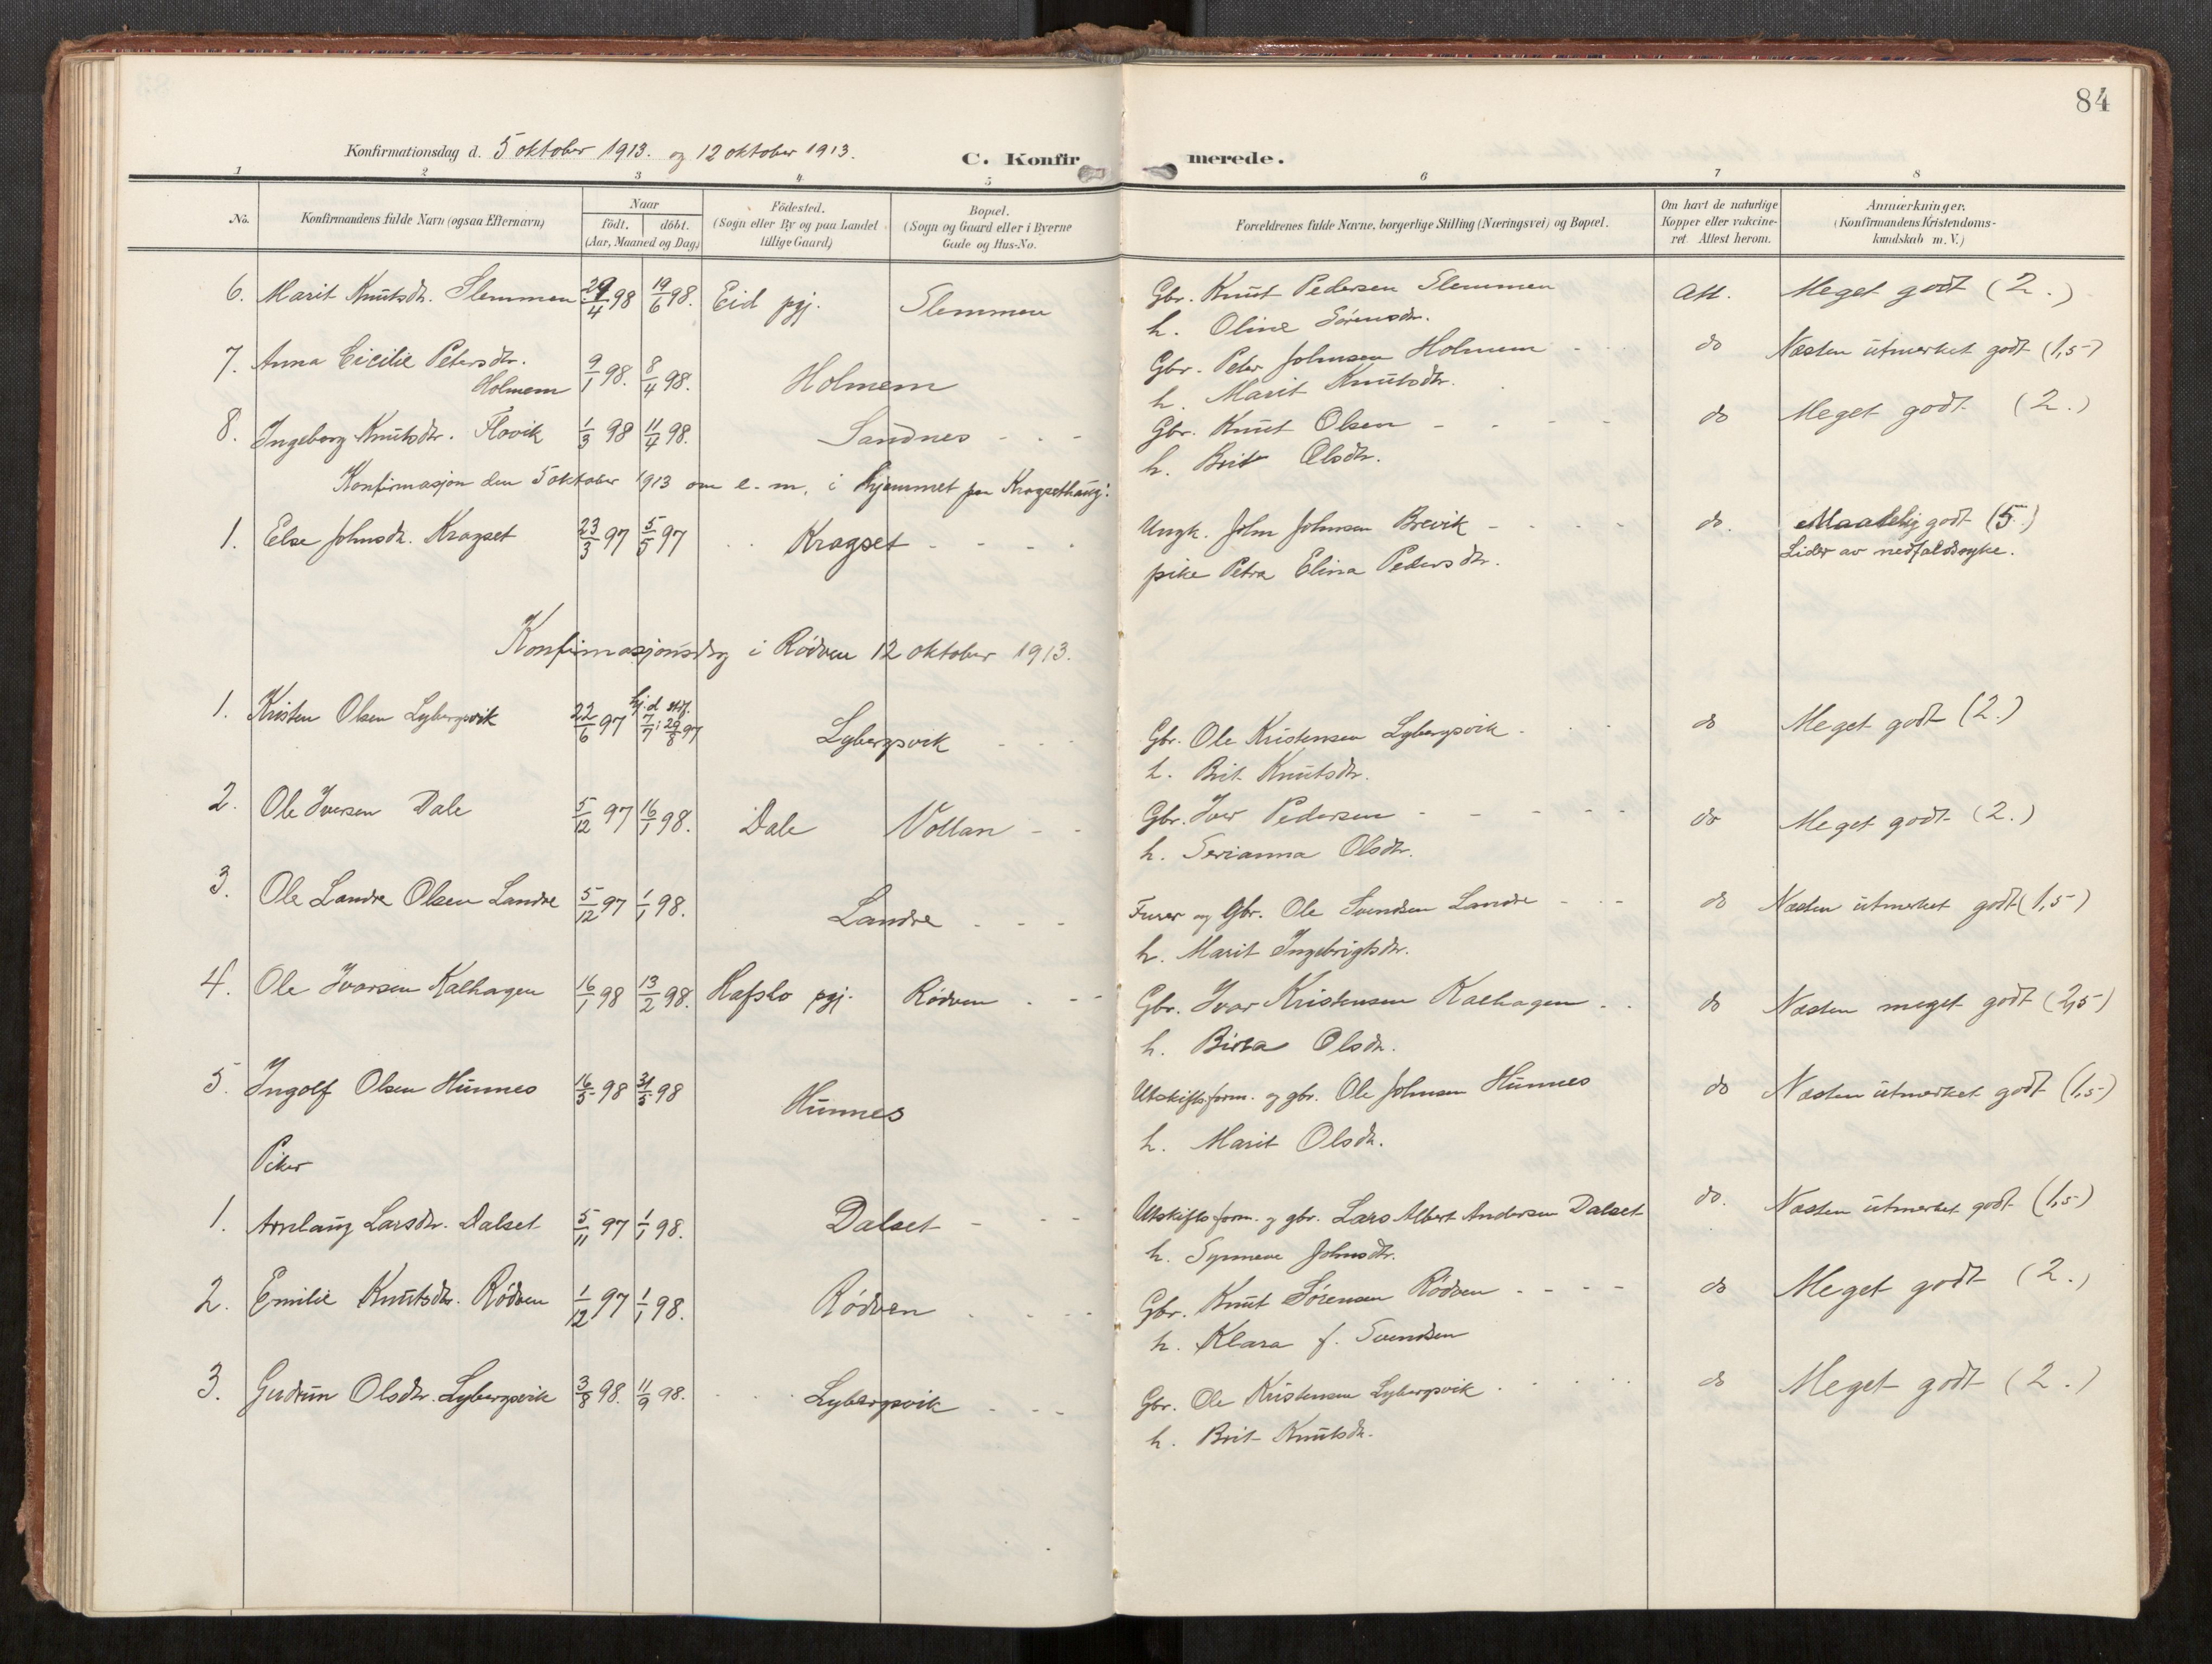 84
Konfirmationsdag d. 5 oktober 1913. og 12 oktober 1913.
C. Konfirmerede.
1 2 3 4 5 6 7 8
No.
Konfirmandens fulde Navn (ogsaa Efternavn)
Naar
födt. döbt.
(Aar, Maaned og Dag)
Födested.
(Sogn eller By og paa Landet
tillige Gaard)
Bopæl.
(Sogn og Gaard eller i Byerne
Gade og Hus-No.
Forældrenes fulde Navne, borgerlige Stilling (Næringsvei) og Bopæl.
Om havt de naturlige
Kopper eller vakcine-
ret. Attest herom.
Anmærkninger.
(Konfirmandens Kristendoms-
kundskab m. V.)
6. Marit Knutsdtr. Slemmen 29/4 98 19/6 98. Eid pgj. Slemmen Gbr. Knut Pedersen Slemmen att. Meget godt (2.)
h. Oline Sörensdtr.
7. Anna Cicilie Petersdtr. Gbr. Peter Johnsen Holmem - do Næsten utmerket godt (1,5)
Holmem 9/1 98. 8/4 98. Holmem h. Marit Knutsdtr.
8. Ingeborg Knutsdtr. Flovik 1/3 98 11/4 98. Sandnes - - - Gbr. Knut Olsen - - - - do Meget godt (2.)
h. Brit Olsdtr.
Konfirmasjon den 5 oktober 1913 om e. m. i hjemmet paa Kragsethaug:
1. Else Johnsdtr. Kragset 23/3 97 5/5 97 Kragset - - - - Ungk. John Johnsen Brevik - - - - do. Maadelig godt (5.)
Lider av nedfaldssyke.
pike Petra Elina Pedersdtr.
Konfirmasjonsdag i Rödven 12 oktober 1913.
1. Kristen Olsen Lybergsvik 22/6 97 hj.d. 7/7; stif. 29/8 97 Lybergsvik - - - Gbr. Ole Kristensen Lybergsvik - - do Meget godt (2.)
h. Brit Knutsdtr.
2. Ole Iversen Dale 5/12 97 16/1 98. Dale Vollan - - Gbr. Iver Pedersen - - - - - do Meget godt (2.)
h. Serianna Olsdtr.
3. Ole Landre Olsen Landre 5/12 97 1/1 98. Landre - - - Furer og Gbr. Ole Svendsen Landre - - - do Næsten utmerket godt (1,5)
h. Marit Ingebrigtsdtr.
4. Ole Ivarsen Kalhagen 16/1 98 13/2 98. Hafslo pgj. Rödven - - - Gbr. Ivar Kristensen Kalhagen - - do Næsten meget godt (2,5)
h. Birta Olsdtr.
5. Ingolf Olsen Hunnes 16/5 98 31/5 98 Hunnes Utskiftsform. og gbr. Ole Johnsen Hunnes do Næsten utmerket godt (1,5)
h. Marit Olsdtr.
Piker
1. Arnlaug Larsdtr. Dalset 5/11 97 1/1 98. Dalset - - - Utskiftsform. og gbr. Lars Albert Andersen Dalset do. Næsten utmerket godt (1,5)
h. Synneve Johnsdtr.
2. Emilie Knutsdtr. Rödven 1/12 97 1/1 98. Rödven - - - Gbr. Knut Sörensen Rödven - - - - do Meget godt (2.)
h. Klara f. Svendsen
3. Gudrun Olsdtr. Lybergsvik 3/8 98. 11/9 98. Lybergsvik - - - Gbr. Ole Kristensen Lybergsvik - - - - do Meget godt (2.)
h. Brit Knutsdtr.